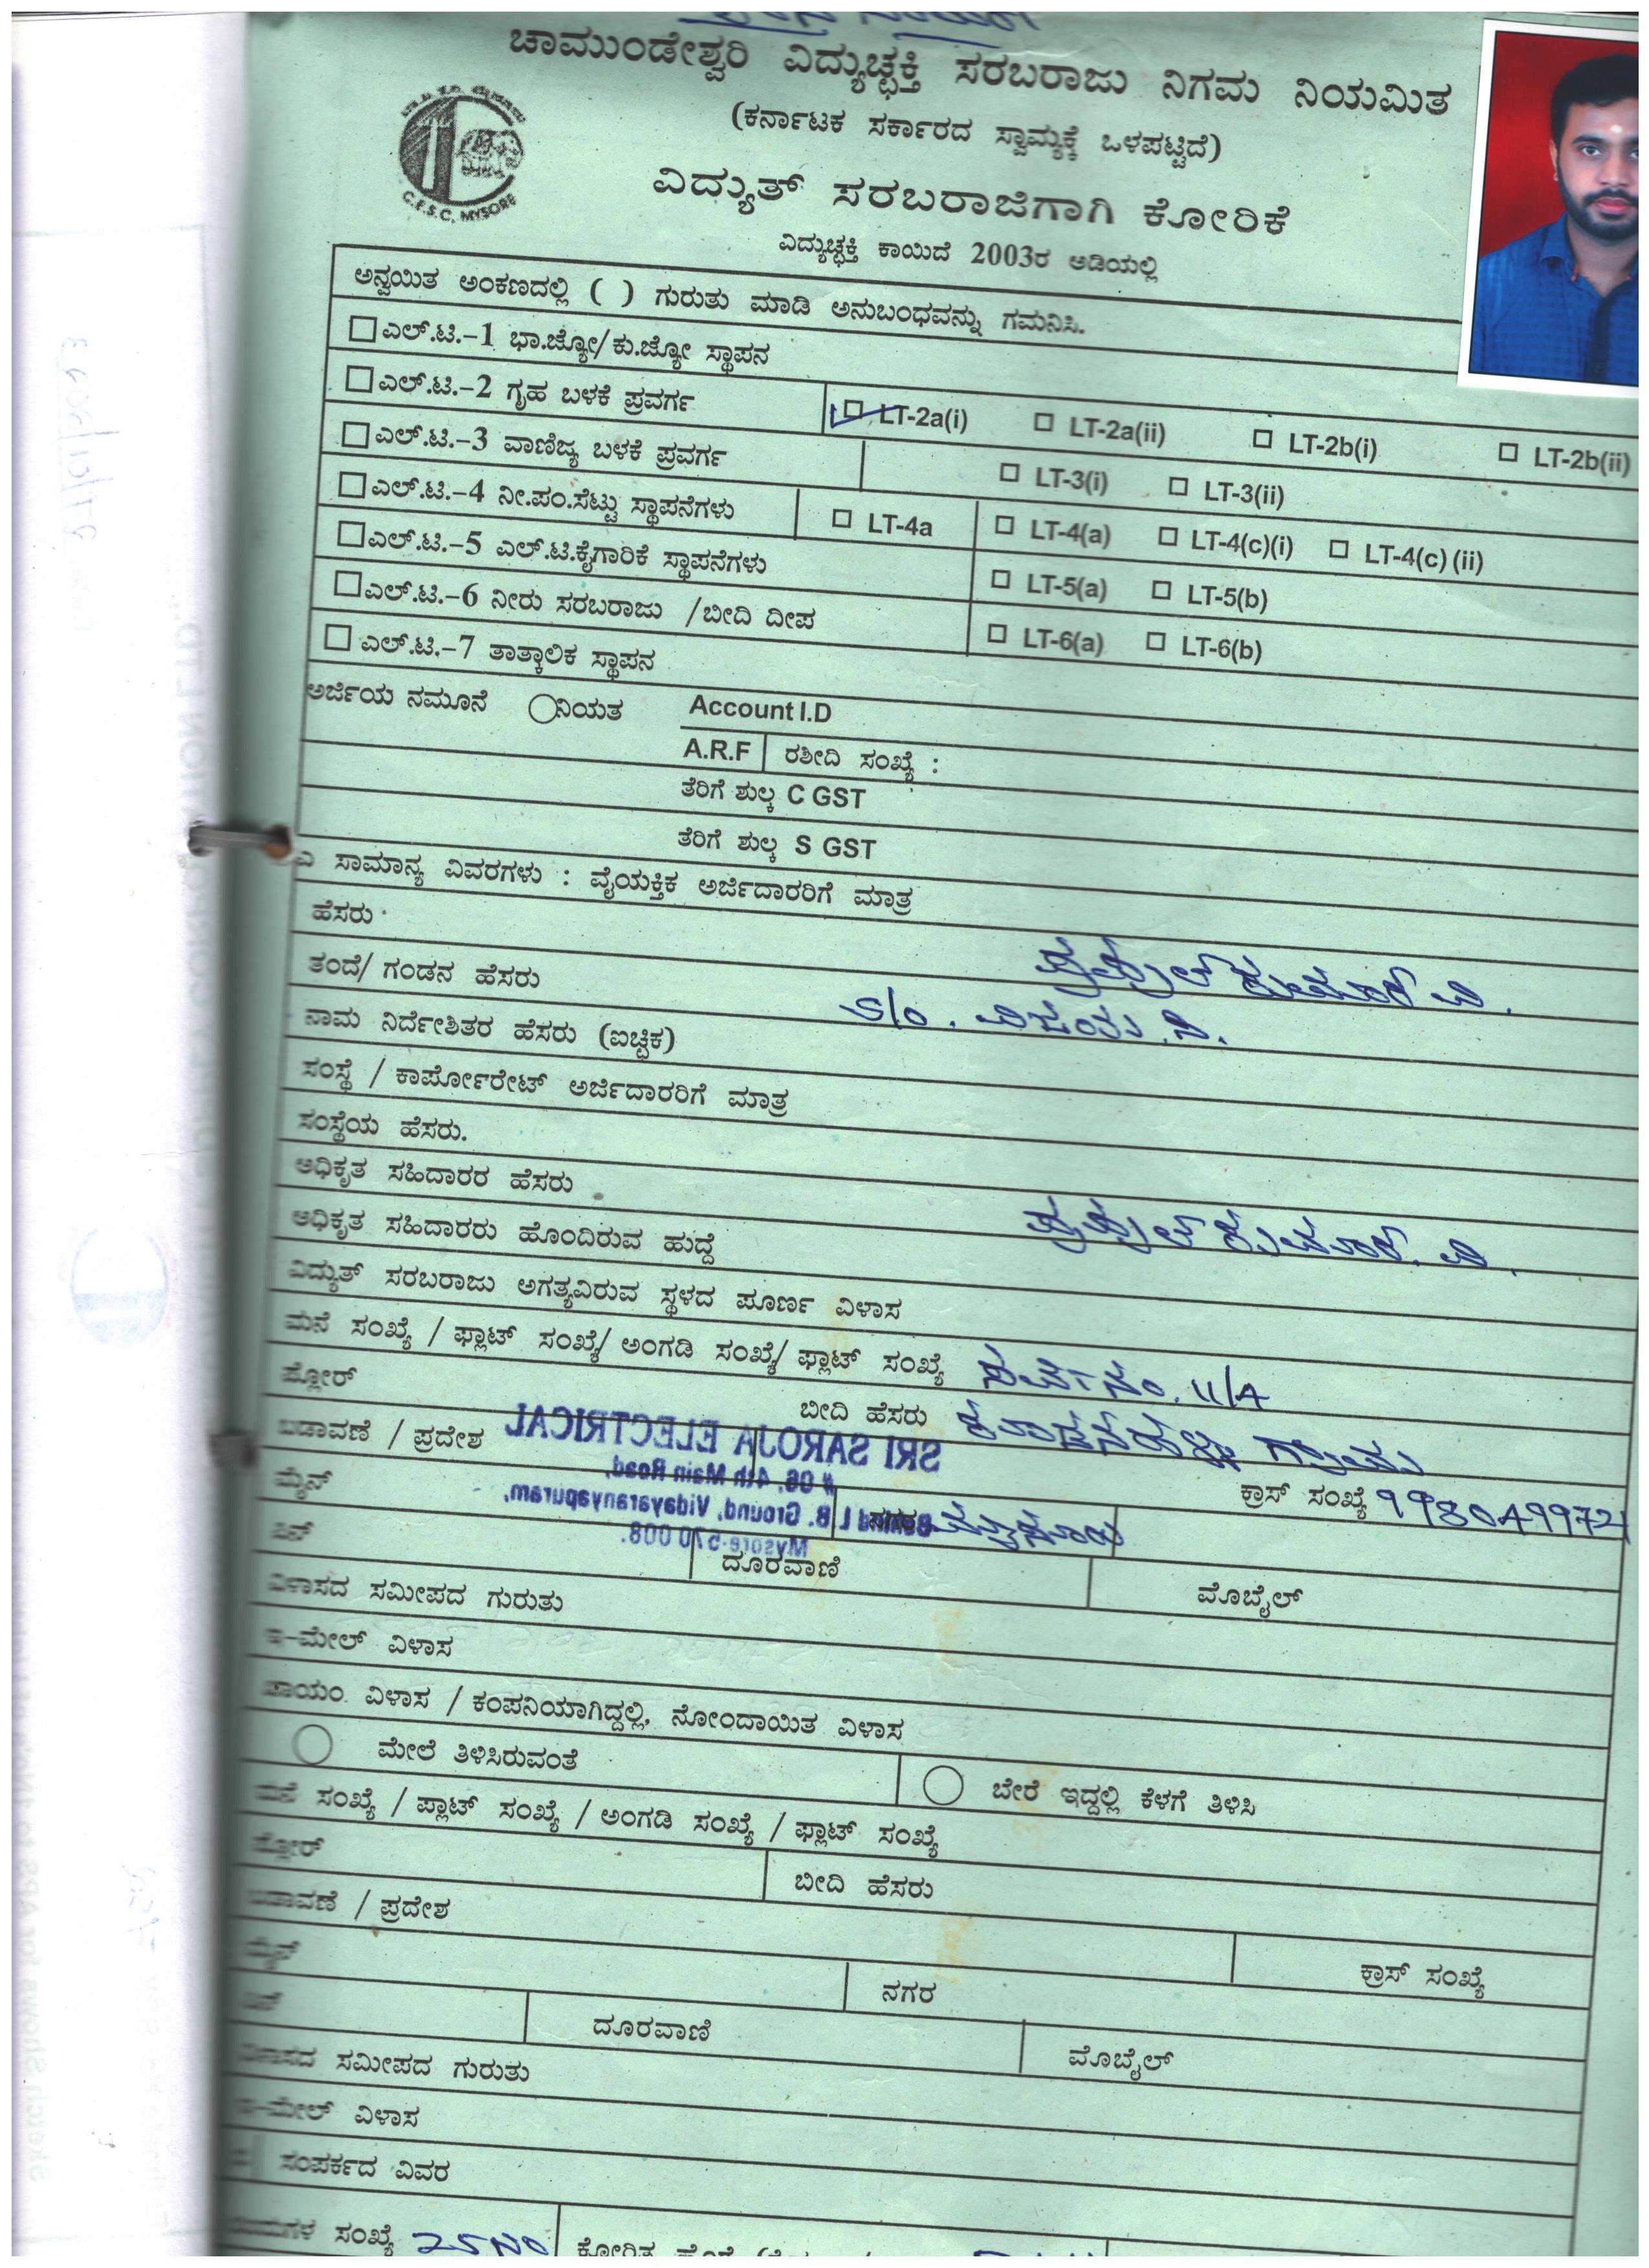 ಚಾಮುಂಡೇಶ್ವರಿ ವಿದ್ಯುಚ್ಛಕ್ತಿ ಸರಬರಾಜು ನಿಗಮ ನಿಯಮಿತ
(ಕರ್ನಾಟಕ ಸರ್ಕಾರದ ಸ್ವಾಮ್ಯಕ್ಕೆ ಒಳಪಟ್ಟಿದೆ)
C.E.S.C, MYSORE
ವಿದ್ಯುತ್ ಸರಬರಾಜಿಗಾಗಿ ಕೋರಿಕೆ
ವಿದ್ಯುಚ್ಛಕ್ತಿ ಕಾಯಿದೆ 2003ರ ಅಡಿಯಲ್ಲಿ
ಅನ್ವಯಿತ ಅಂಕಣದಲ್ಲಿ ( ) ಗುರುತು ಮಾಡಿ ಅನುಬಂಧವನ್ನು ಗಮನಿಸಿ.
ಎಲ್.ಟಿ.-1 ಭಾ.ಜ್ಯೋ/ಕು.ಜ್ಯೋ ಸ್ಥಾಪನ
ಎಲ್.ಟಿ.-2 ಗೃಹ ಬಳಕೆ ಪ್ರವರ್ಗ LT-2a(i) LT-2a(ii) LT-2b(i) LT-2b(ii)
ಎಲ್.ಟಿ.-3 ವಾಣಿಜ್ಯ ಬಳಕೆ ಪ್ರವರ್ಗ LT-3(i) LT-3(ii)
ಎಲ್.ಟಿ.-4 ನೀ.ಪಂ.ಸೆಟ್ಟು ಸ್ಥಾಪನೆಗಳು LT-4a LT-4(a) LT-4(c)(i) LT-4(c) (ii)
ಎಲ್.ಟಿ.-5 ಎಲ್.ಟಿ.ಕೈಗಾರಿಕೆ ಸ್ಥಾಪನೆಗಳು LT-5(a) LT-5(b)
ಎಲ್.ಟಿ.-6 ನೀರು ಸರಬರಾಜು /ಬೀದಿ ದೀಪ LT-6(a) LT-6(b)
ಎಲ್.ಟಿ.-7 ತಾತ್ಕಾಲಿಕ ಸ್ಥಾಪನ
ಅರ್ಜಿಯ ನಮೂನೆ ನಿಯತ Account I.D
A.R.F ರಶೀದಿ ಸಂಖ್ಯೆ :
ತೆರಿಗೆ ಶುಲ್ಕ C GST
ತೆರಿಗೆ ಶುಲ್ಕ S GST
ಎ ಸಾಮಾನ್ಯ ವಿವರಗಳು : ವೈಯಕ್ತಿಕ ಅರ್ಜಿದಾರರಿಗೆ ಮಾತ್ರ
ಹೆಸರು ಪ್ರಪ್ಪುಲ್ ಕುಮಾರ್ ವಿ.
ತಂದೆ/ ಗಂಡನ ಹೆಸರು S/o. ವಿಜಯ ಸಿ.
ನಾಮ ನಿರ್ದೇಶಿತರ ಹೆಸರು (ಐಚ್ಛಿಕ)
ಸಂಸ್ಥೆ / ಕಾರ್ಪೋರೇಟ್ ಅರ್ಜಿದಾರರಿಗೆ ಮಾತ್ರ
ಸಂಸ್ಥೆಯ ಹೆಸರು.
ಅಧಿಕೃತ ಸಹಿದಾರರ ಹೆಸರು
ಅಧಿಕೃತ ಸಹಿದಾರರು ಹೊಂದಿರುವ ಹುದ್ದೆ ಪ್ರಪ್ಪುಲ್ ಕುಮಾರ್. ವಿ.
ವಿದ್ಯುತ್ ಸರಬರಾಜು ಅಗತ್ಯವಿರುವ ಸ್ಥಳದ ಪೂರ್ಣ ವಿಳಾಸ
ಮನೆ ಸಂಖ್ಯೆ / ಫ್ಲಾಟ್ ಸಂಖ್ಯೆ/ ಅಂಗಡಿ ಸಂಖ್ಯೆ/ ಫ್ಲಾಟ್ ಸಂಖ್ಯೆ ಸರ್ವೆ ನಂ. 11/A
ಫ್ಲೋರ್ ಬೀದಿ ಹೆಸರು ಗ್ರಾಮ
ಬಡಾವಣೆ / ಪ್ರದೇಶ
SRI SAROJA ELECTRICAL
# 06, 4th Main Road,
Behind J.B. Ground, Vidayaranyapuram,
Mysore-570 008.
ಮೈನ್ ನಗರ ಮೈಸೂರು ಕ್ರಾಸ್ ಸಂಖ್ಯೆ
ಪಿನ್ ದೂರವಾಣಿ ಮೊಬೈಲ್
ವಿಳಾಸದ ಸಮೀಪದ ಗುರುತು
ಇ-ಮೇಲ್ ವಿಳಾಸ
ಖಾಯಂ ವಿಳಾಸ / ಕಂಪನಿಯಾಗಿದ್ದಲ್ಲಿ, ನೋಂದಾಯಿತ ವಿಳಾಸ
ಮೇಲೆ ತಿಳಿಸಿರುವಂತೆ ಬೇರೆ ಇದ್ದಲ್ಲಿ ಕೆಳಗೆ ತಿಳಿಸಿ
ಮನೆ ಸಂಖ್ಯೆ / ಫ್ಲಾಟ್ ಸಂಖ್ಯೆ / ಅಂಗಡಿ ಸಂಖ್ಯೆ / ಫ್ಲಾಟ್ ಸಂಖ್ಯೆ
ಫ್ಲೋರ್ ಬೀದಿ ಹೆಸರು
ಬಡಾವಣೆ / ಪ್ರದೇಶ
ಮೈನ್ ನಗರ ಕ್ರಾಸ್ ಸಂಖ್ಯೆ
ಪಿನ್ ದೂರವಾಣಿ ಮೊಬೈಲ್
ವಿಳಾಸದ ಸಮೀಪದ ಗುರುತು
ಇ-ಮೇಲ್ ವಿಳಾಸ
ಸಂಪರ್ಕದ ವಿವರ
ಸಂಖ್ಯೆ 25NO